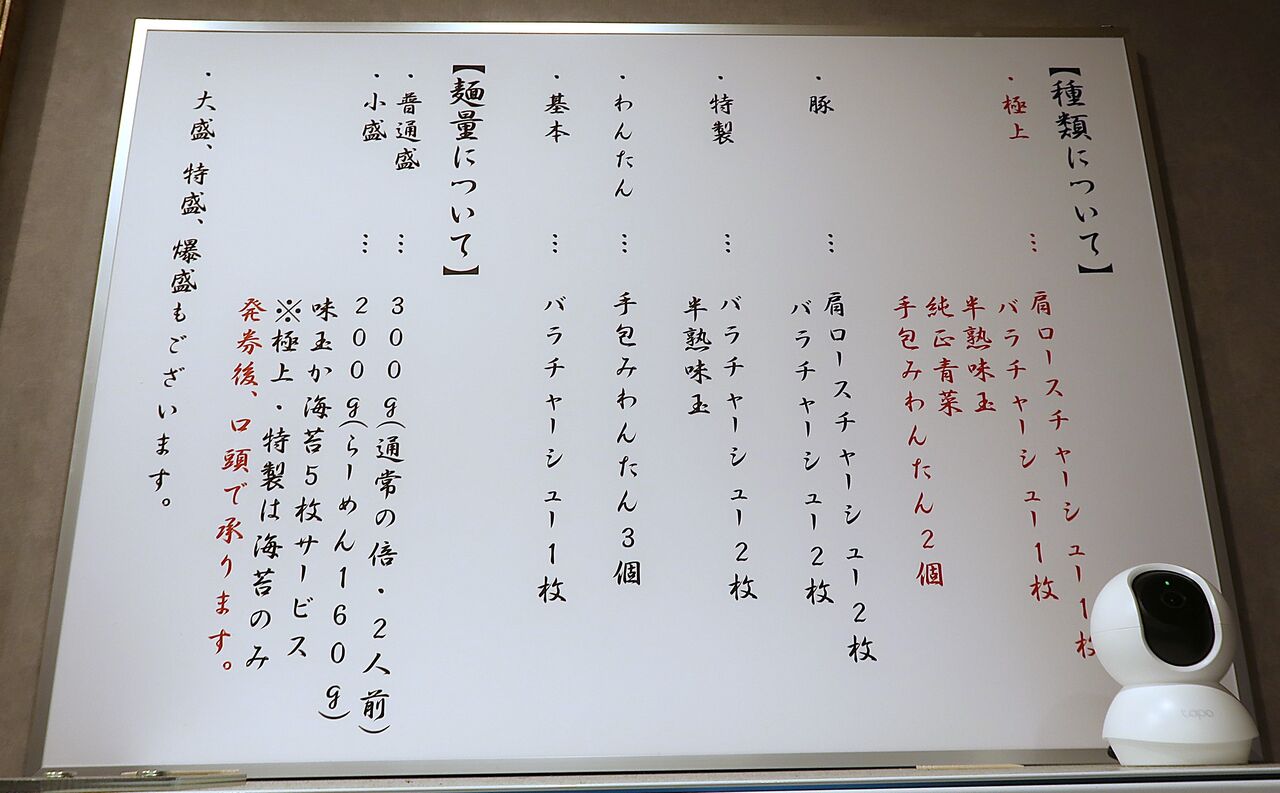 【種類について】
・極上 … 肩ロースチャーシュー1枚
バラチャーシュー1枚
半熟味玉
純正青菜
手包みわんたん2個
・豚 … 肩ロースチャーシュー2枚
バラチャーシュー2枚
・特製 … バラチャーシュー2枚
半熟味玉
・わんたん … 手包みわんたん3個
・基本 … バラチャーシュー1枚
【麺量について】
・普通盛 … 300g(通常の倍・2人前)
・小盛 … 200g(らーめん160g)
味玉か海苔5枚サービス
※極上・特製は海苔のみ
発券後、口頭で承ります。
・大盛、特盛、爆盛もございます。
tapo